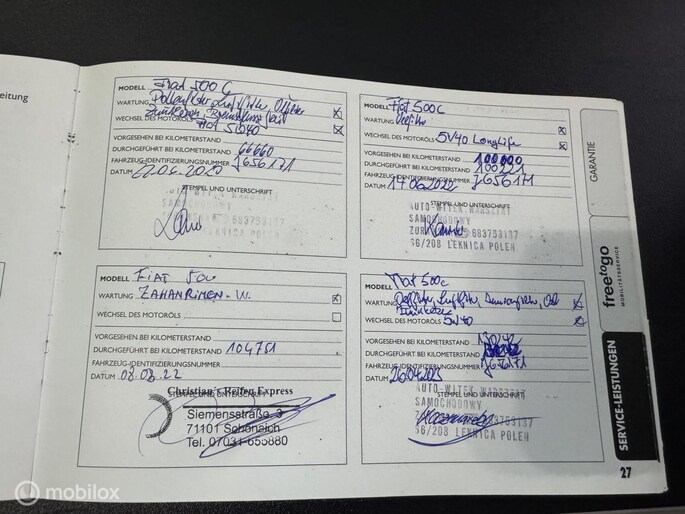 eitung
MODELL Fiat 500 C
WARTUNG Pollenfilter, Luftfilter, Ölfilter
Zündkerzen, Bremsflüssigkeit
WECHSEL DES MOTORÖLS 5W40
VORGESEHEN BEI KILOMETERSTAND
DURCHGEFÜHRT BEI KILOMETERSTAND 66660
FAHRZEUG-IDENTIFIZIERUNGSNUMMER J656171
DATUM .06.2020
STEMPEL UND UNTERSCHRIFT
AUTO-WITEK WARSZTAT
SAMOCHODOWY
683753137
LEKNICA POLEN
MODELL FIAT 500
WARTUNG ZAHNRIMEN-W.
WECHSEL DES MOTORÖLS
VORGESEHEN BEI KILOMETERSTAND
DURCHGEFÜHRT BEI KILOMETERSTAND 104751
FAHRZEUG-IDENTIFIZIERUNGSNUMMER
DATUM 08.08.22
Christian´s Reifen Express
STEMPEL UND UNTERSCHRIFT
Siemensstraße 3
71101 Schönaich
Tel. 07031-655880
MODELL Fiat 500c
WARTUNG Ölfilter
WECHSEL DES MOTORÖLS 5W40 Longlife
VORGESEHEN BEI KILOMETERSTAND 100000
DURCHGEFÜHRT BEI KILOMETERSTAND 100221
FAHRZEUG-IDENTIFIZIERUNGSNUMMER J656171
DATUM 14062022
STEMPEL UND UNTERSCHRIFT
AUTO-WITEK WARSZTAT
SAMOCHODOWY
683753137
66/208 LEKNICA POLEN
MODELL Fiat 500c
WARTUNG Ölfilter, Luftfilter,
WECHSEL DES MOTORÖLS 5W40
VORGESEHEN BEI KILOMETERSTAND 130242
DURCHGEFÜHRT BEI KILOMETERSTAND
FAHRZEUG-IDENTIFIZIERUNGSNUMMER J656171
DATUM 26042023
AUTO-WITEK WARSZTAT
STEMPEL UND UNTERSCHRIFT
SAMOCHODOWY
66/208 LEKNICA POLEN
GARANTIE
freetogo
MOBILITÄTSSERVICE
SERVICE-LEISTUNGEN
27
mobilox